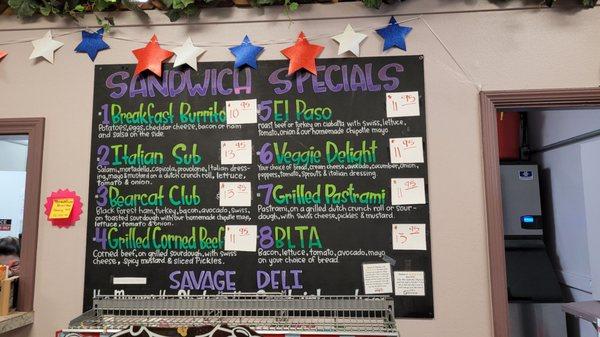 SANDWICH SPECIALS
1 Breakfast Burrito 10.95
Potatoes, eggs, cheddar cheese, bacon or ham
and salsa on the side.
2 Italian Sub 13.95
Salami, mortadella, capicola, provolone, Italian dress-
ing, mayo & mustard on a dutch crunch roll, lettuce,
tomato & onion.
3 Bearcat Club 13.95
Black forest ham, turkey, bacon, avocado, swiss,
on toasted sourdough with our homemade chipotle mayo,
lettuce, tomato & onion.
4 Grilled Corned Beef 11.95
Corned beef, on grilled sourdough with swiss
cheese, spicy mustard & sliced pickles.
5 El Paso 11.95
Roast beef or turkey on ciabatta with swiss, lettuce,
tomato, onion & our homemade chipotle mayo.
6 Veggie Delight 11.95
Your choice of bread, cream cheese, avocado, cucumber, onion,
peppers, tomato, sprouts & italian dressing.
7 Grilled Pastrami 11.95
Pastrami, on a grilled dutch crunch roll or sour-
dough, with swiss cheese, pickles & mustard.
8 BLTA 13.95
Bacon, lettuce, tomato, avocado, mayo
on your choice of bread.
SAVAGE DELI